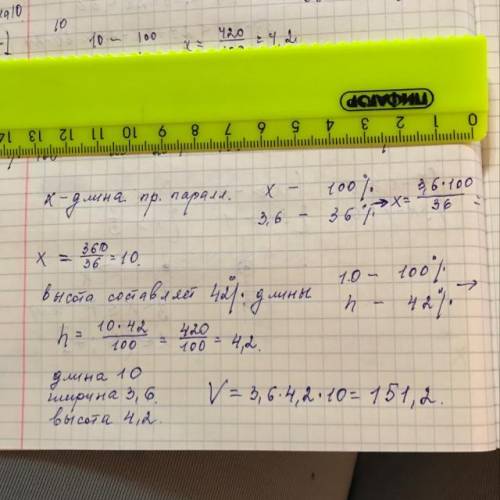 10
10 – 100
x = 420 = 4,2
ПИФАГОР
14 13 12 11 10 9 8 7 6 5 4 3 2 1 0
x – длина пр. паралл.
x – 100%
3,6 – 36% → x = 3,6·100/36 =
x = 360/36 = 10.
высота составляет 42% длины
10 – 100% →
h – 42%
h = 10·42/100 = 420/100 = 4,2.
длина 10
ширина 3,6.
высота 4,2.
V = 3,6·4,2·10 = 151,2.